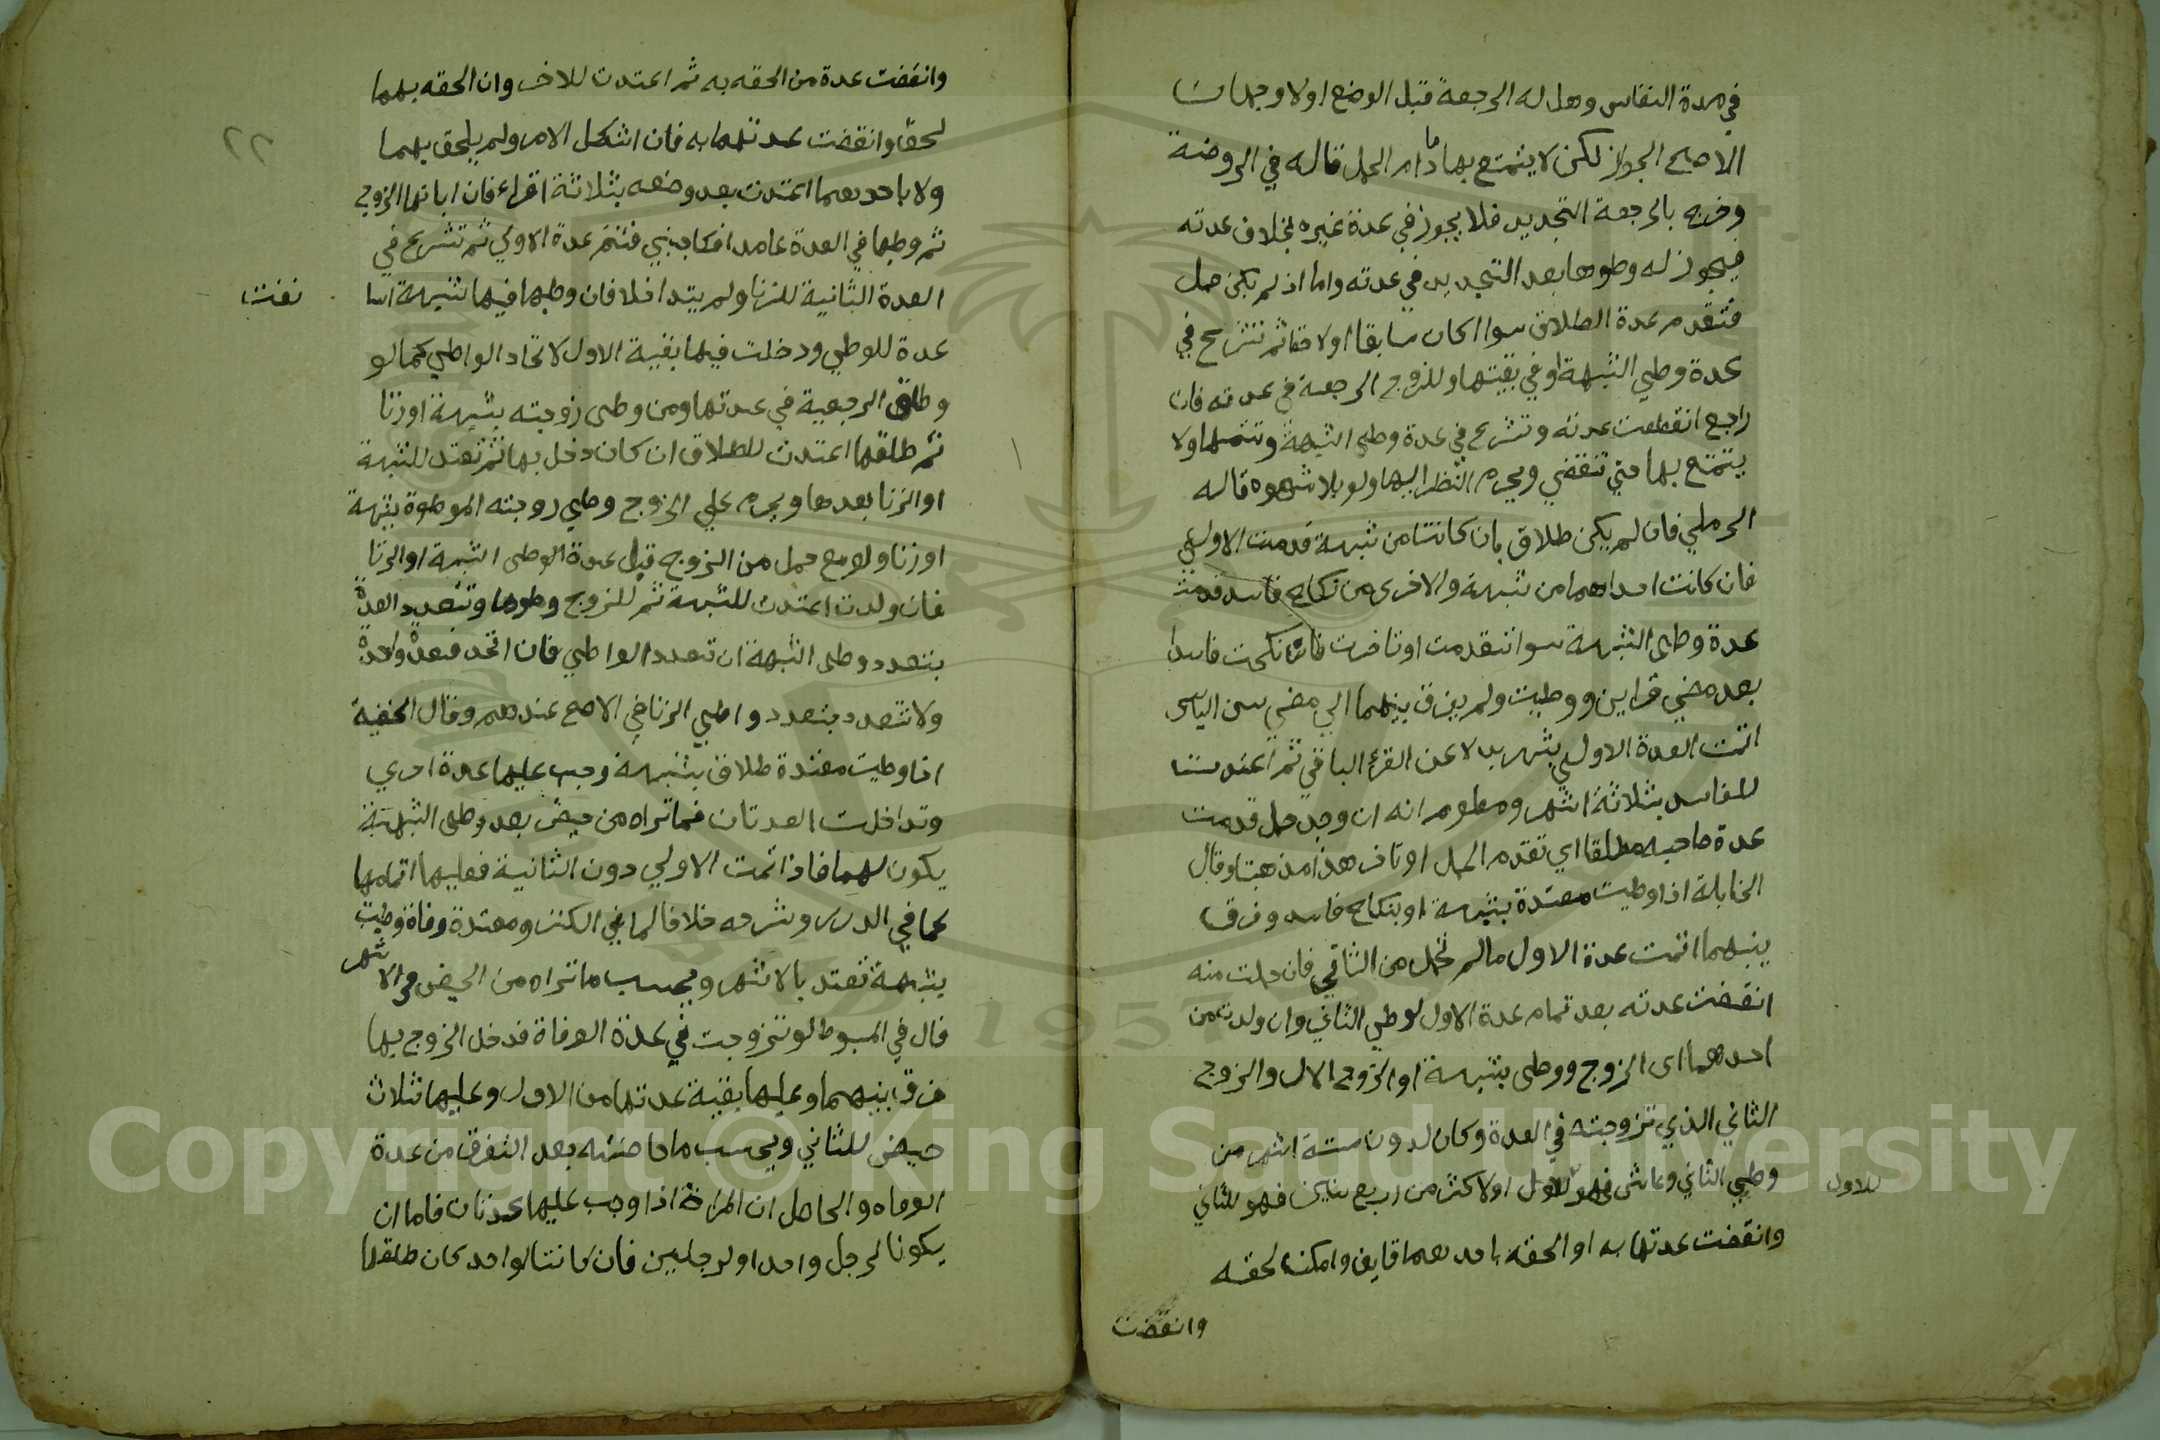 في مدة النفاس وهل له الرجعة قبل الوضع اولا وجهان
الاصح الجواز لكن لا يتمتع بها ما دام الحمل قاله في الروضة
وخرج بالرجعة التجديد فلا يجوز في عدة غيره بخلاف عدته
فيجوز له وطوها بعد التجديد في عدته واما اذ لم يكن حمل
فتقدم عدة الطلاق سوا اكان سابقا اولاحقا ثم تشرع في
عدة وطي الشبهة وفي بقيتها وللزوج الرجعة في عدته فان
راجع انقطعت عدته وتشرع في عدة وطي الشبهة وتتمها ولا
يتمتع بها حتي تنقضي ويحرم النظر اليها ولو بلا شهوه قاله
الرملي فان لم يكن طلاق بان كانتا من شبهة قدمت الاولي
فان كانت احداهما من شبهة والاخرى من نكاح فاسد قدمت
عدة وطي الشبهة سوا تقدمت او تاخرت فان نكحت فاسدا
بعد مضي قراين ووطيت ولم يفرق بينهما الي مضي سن الياس
اتمت العدة الاولي بشهر بدلا عن القرء الباقي ثم اعتدت
للفاسد بثلاثة اشهر ومعلوم انه ان وجد حمل قدمت
عدة صاحبه مطلقا اي تقدم الحمل او تاخر هذا مذهبنا وقال
الحنابلة اذا وطيت معتدة بشبهة او بنكاح فاسد وفرق
بينهما اتمت عدة الاول مالم تحمل من الثاني فان حملت منه
انقضت عدته بعد تمام عدة الاول لوطي الثاني وان ولدت من
احدهما اى الزوج ووطي بشبهة او الزوج الاول والزوج
الثاني الذي تزوجته في العدة وكان لدون ستة اشهر من
وطي الثاني وعاش فهو للاول او لاكثر من اربع سنين فهو للثاني
للاول
وانقضت عدتها به او الحقه باحدهما قايف وامكن لحقه
وانقضت
٢٢
وانقضت عدة من الحقه به ثم اعتدت للاخر وان الحقه بهما
لحق وانقضت عدتهما به فان اشكل الامر ولم يلحق بهما
ولا باحدهما اعتدت بعد وضعه بثلاثة اقراء فان ابانها الزوج
ثم وطيها في العدة عامدا فكاجنبي فتتم عدة الاولي ثم تشرع في
العدة الثانية للزنا ولم يتداخلا فان وطيها فيها بشبهة
عدة للوطي ودخلت فيها بقية الاول لاتحاد الواطي كما لو
وطلق الرجعية في عدتها ومن وطي زوجته بشبهة او زنا
ثم طلقها اعتدت للطلاق ان كان دخل بها ثم تعتد للشبهة
او الزنا بعدها ويحرم علي الزوج وطي زوجته الموطوة بشبهة
او زنا ولو مع حمل من الزوج قبل عدة الوطي الشبهة او الزنا
فان ولدت اعتدت للشبهة ثم للزوج وطوها وتتعدد العدة
بتعدد وطي الشبهة ان تعدد الواطي فان اتحد فعدة واحدة
ولا تتعدد بتعدد واطي الزنا في الاصح عندهم وقال الحنفية
اذا وطيت معتدة طلاق بشبهة وجب عليها عدة اخري
وتداخلت العدتان فما تراه من حيض بعد وطي الشبهة
يكون لهما فاذا تمت الاولي دون الثانية فعليها اتمامها
كما في الدرر وشرحه خلافا لما في الكنز ومعتدة وفاة وطيت
بشبهة تعتد بالاشهر ويحسب ما تراه من الحيض في الاشهر
قال في المبسوط لو تزوجت في عدة الوفاة فدخل الزوج بها
فرق بينهما وعليها بقية عدتها من الاول وعليها ثلاث
حيض للثاني ويحسب ما حاضته بعد التفرق من عدة
الوفاه والحاصل ان المراة اذا وجب عليها عدتان فاما ان
يكونا لرجل واحد او لرجلين فان كانتا لواحد كان طلقها